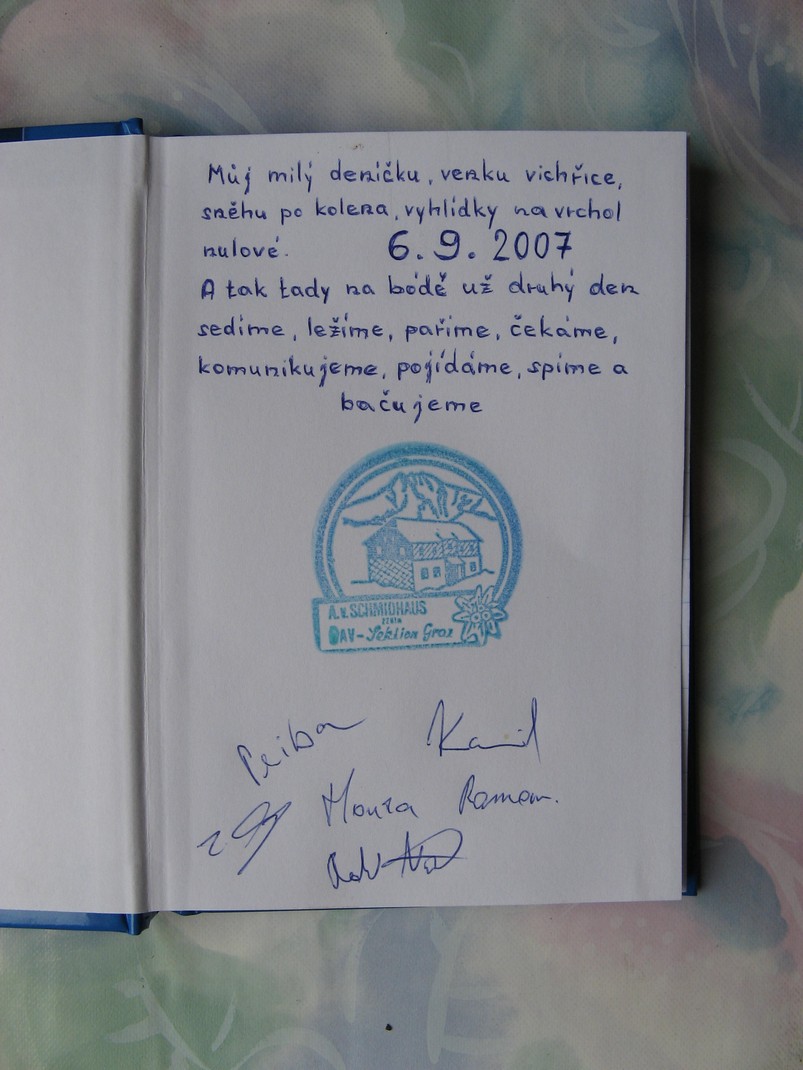 Můj milý deníčku, venku vichřice,
sněhu po kolena, vyhlídky na vrchol
nulové. 6. 9. 2007
A tak tady na bódě už druhý den
sedíme, ležíme, paříme, čekáme,
komunikujeme, pojídáme, spíme a
bačujeme
A.v. SCHMIDHAUS
DAV-Sektion Graz
Kamil
Honza Roman